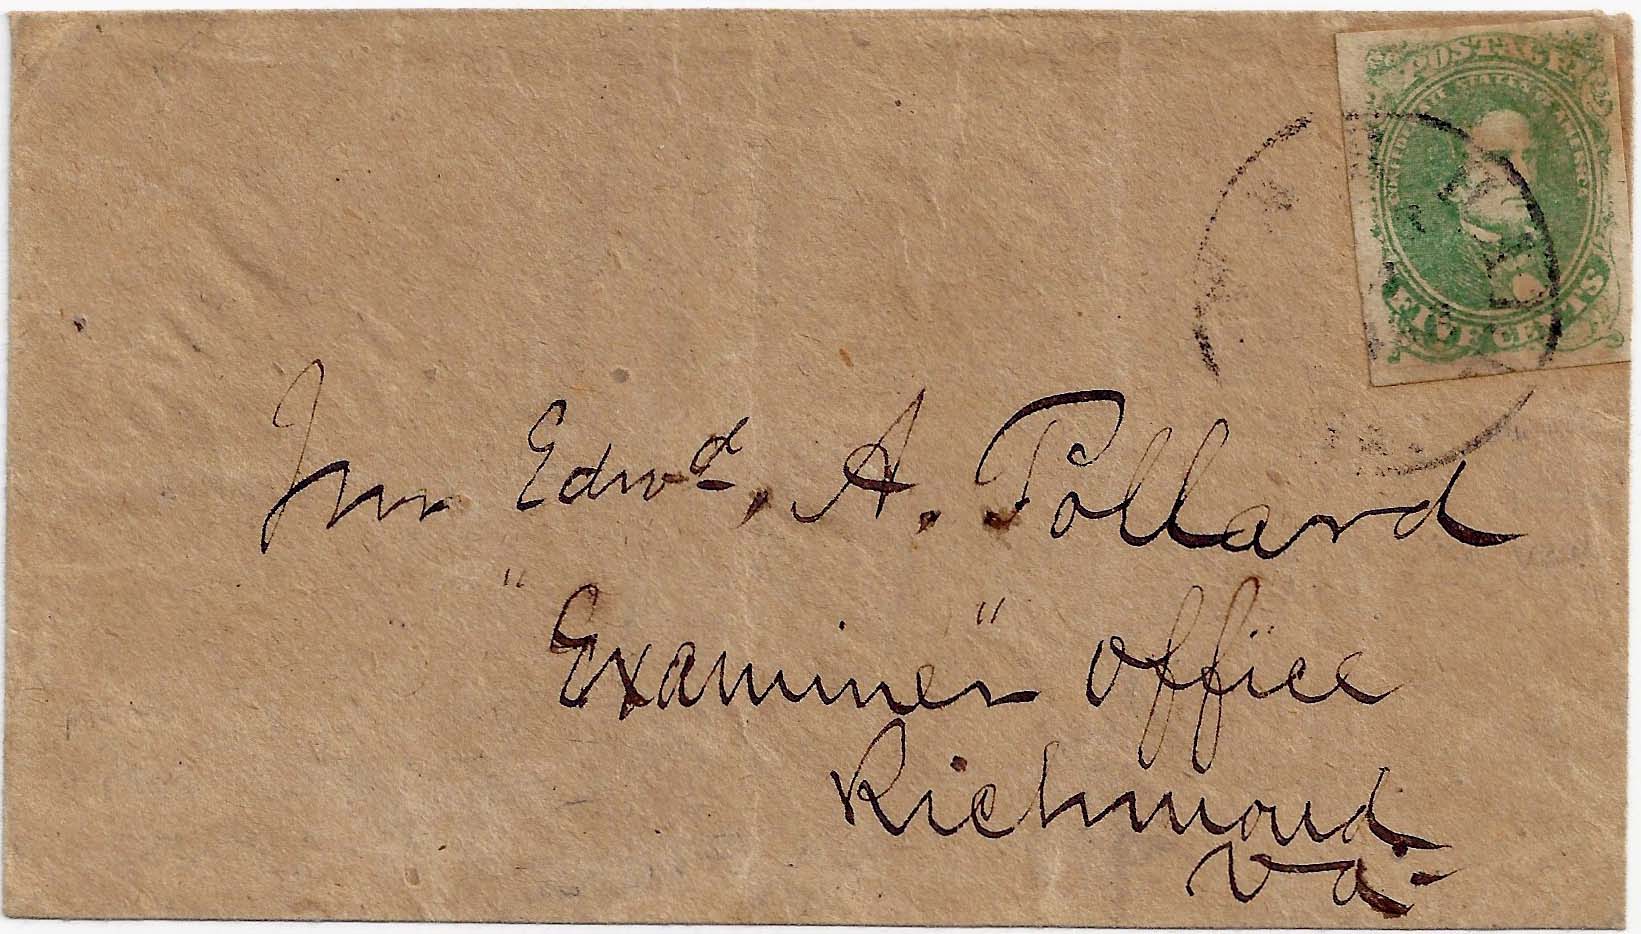 POSTAGE
STATES OF AMERICA
FIVE CENTS
Mr Edwd. A. Pollard
"Examiner" Office
Richmond
Va.